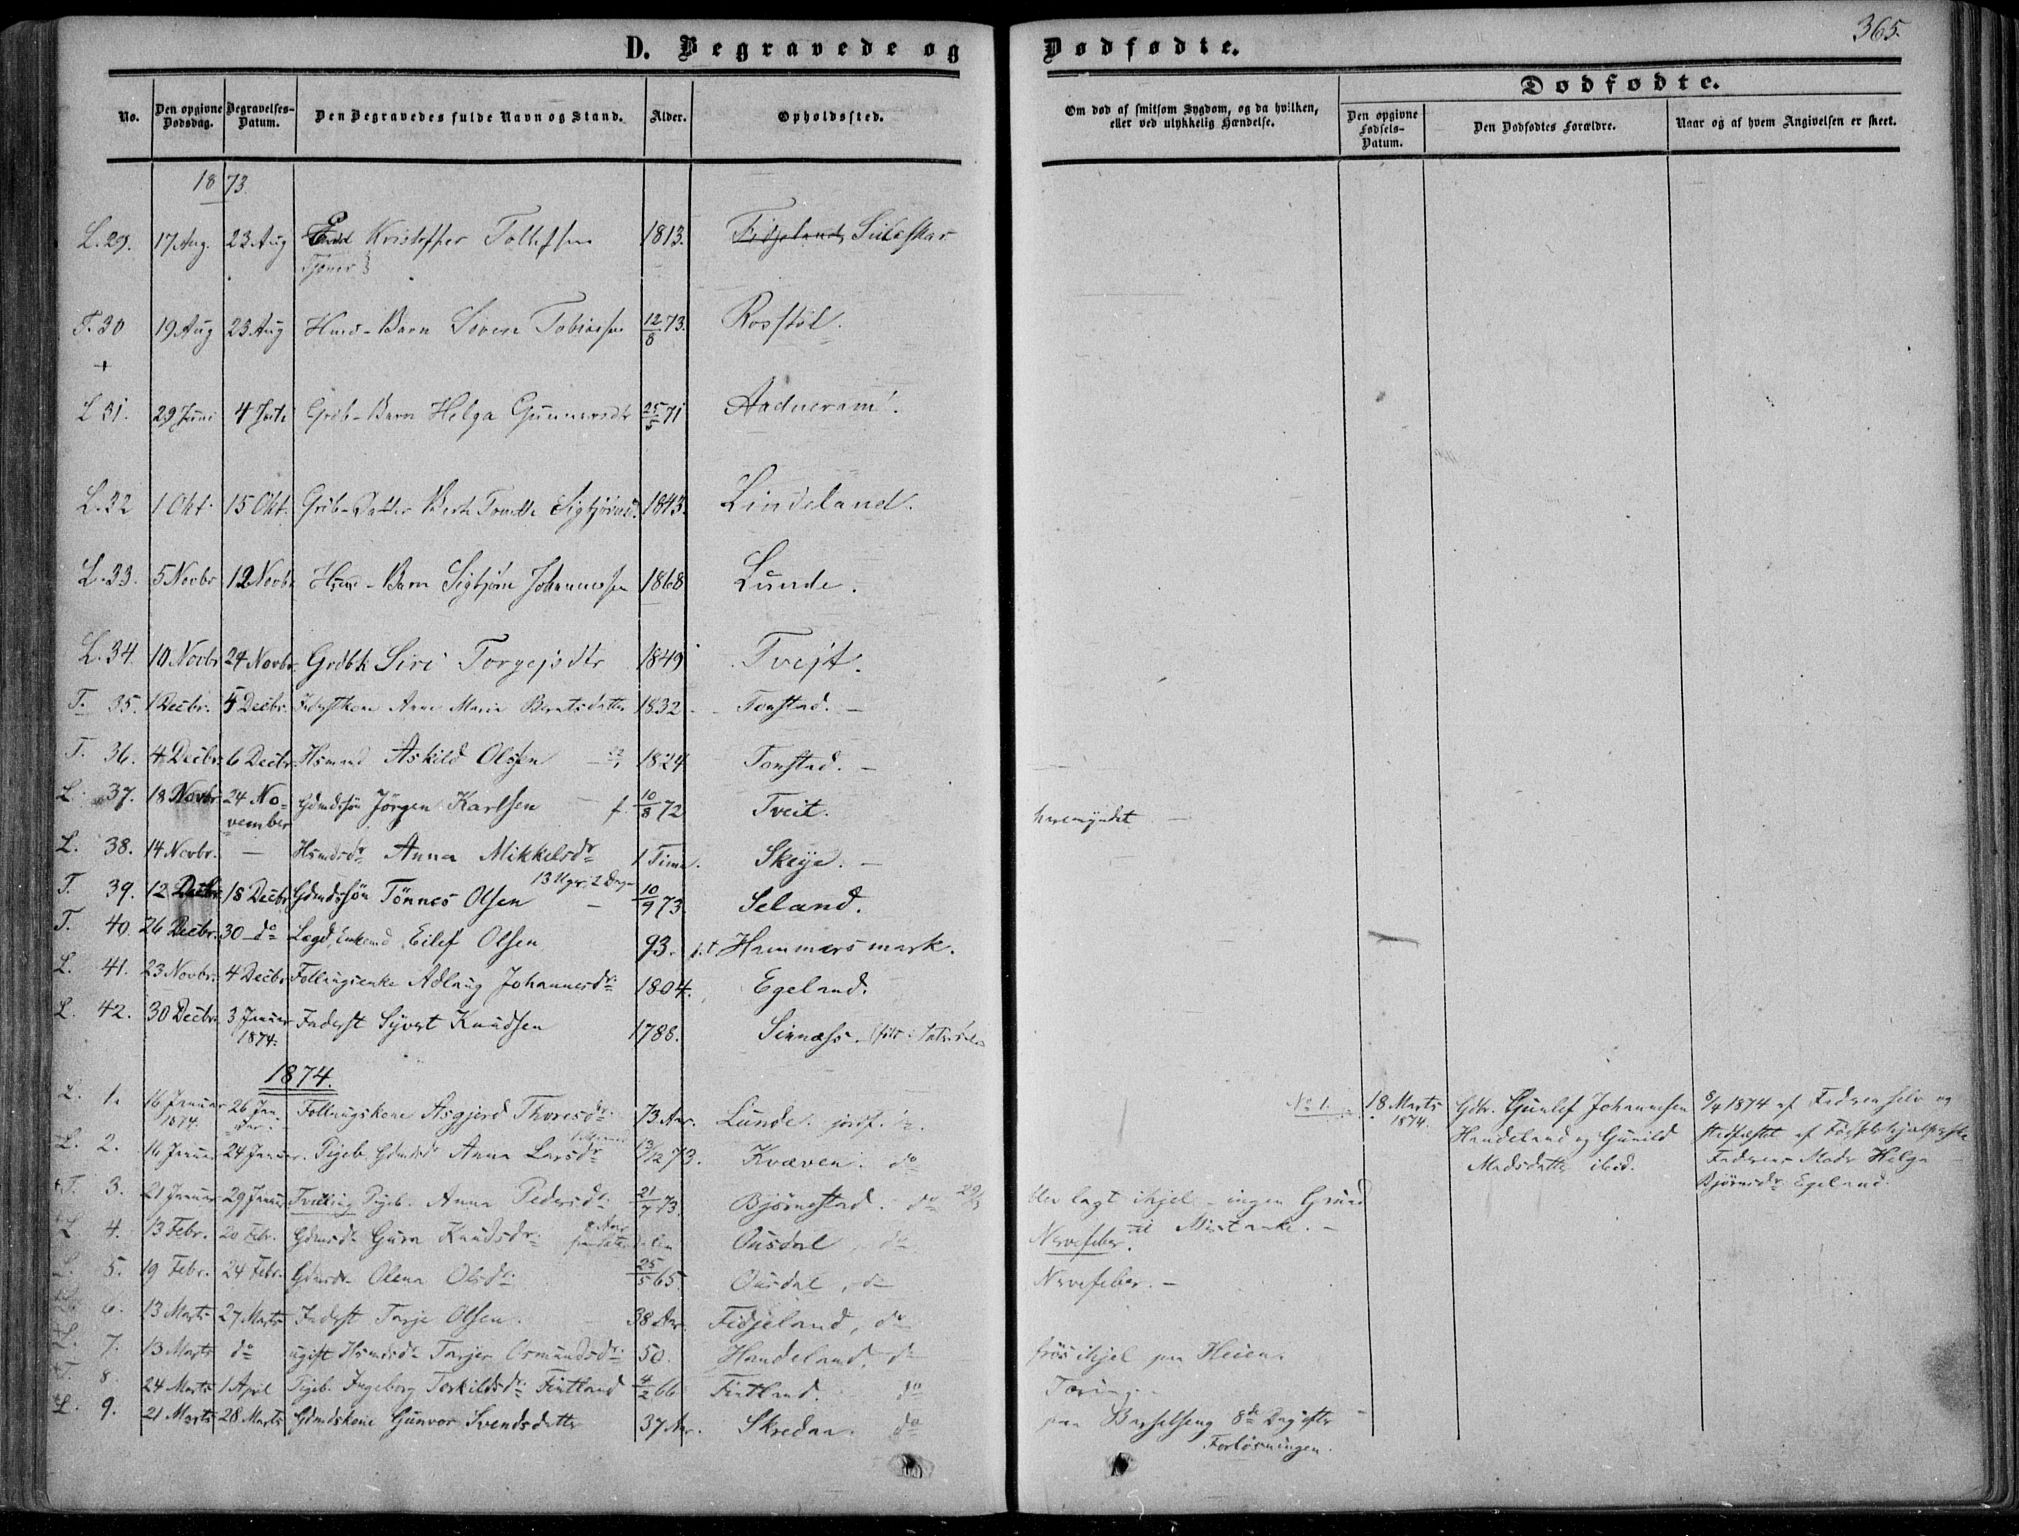 365.
D. Begravede og Dødfødte.
No.
Den opgivne Dødsdag.
Begravelses-Datum.
Den Begravedes fulde Navn og Stand.
Alder.
Opholdssted.
Om død af smitsom Sygdom, og da hvilken, eller ved ulykkelig Hændelse.
Dødfødte.
Den opgivne Fødsels-Datum.
Den Dødfødtes Forældre.
Naar og af hvem Angivelsen er skeet.
1873
L. 29. 17 Aug. 23 Aug Kristoffer Tollefsen 1813. Fidjeland Suleskar
T. 30 19 Aug 23 Aug Hmd-Barn Søren Tobiassen 12/8 73. Rosstøl.
L 31. 29 Juni 4 Juli Grdb-Barn Helga Gunnarsdtr 25/5 71 Aadneram.
L. 32 1 Okt. 15 Okt. Grdb-Datter Tonette Sigbjørnsd. 1843. Lindeland.
L. 33. 5 Novbr 12 Novbr Hmd-Barn Sigbjørn Johannessen 1868 Lunde.
L. 34. 10 Novbr 24 Novbr Grdbk Siri Torgejsdtr 1849 Tvejt.
T. 35. 1 Decbr. 5 Decbr. Inderstkone Anne Marie Berntsdatter 1832 Tonstad. -
T. 36. 4 Decbr. 6 Decbr. Hsmand Askild Olsen 1824 Tonstad. -
L. 37. 18 Novbr 24 No-vember Gdmdssøn Jørgen Karlsen f. 10/8 72 Tveit.
L. 38. 14 Novbr. - Hsmdsdr Anna Mikkelsdr 1 Time. Skeije. -
T. 39. 12 Decbr 18 Decbr Gdmdssøn Tønnes Olsen 13 Uger 2 Dage 10/9 73. Seland.
T. 40. 26 Decbr. 30 do Lægd, Enkemd Eilef Olsen 93. Hammersmark.
L. 41. 23 Novbr. 4 Decbr Follaugsenke Adlaug Johannesdr 1804. Egeland.
L. 42. 30 Decbr. 3 Januar 1874. Inderst Syvert Knudsen 1788. Sinnæss.
1874.
L. 1. 16 Januar 1874. 26 Jan- Follaugskone Asgjerd Thoresdr 73 Aar. Lunde. jordf.
L. 2. 16 Januar 24 Januar. Pigeb. Gdmdsdr Anna Larsdr 13/12 73. Kvæven. do
T. 3. 21 Januar 29 Januar Tvilling Pigeb. Anna Pedersdr 21/7 73. Bjørnestad. do blev lagt ihjel - ingen Grund til Mistanke. -
L 4. 13 Febr. 20 Febr. Gdmdsdr Gura Knudsdr Ousdal, do Nervefeber.
L. 5. 19 Febr. 24 Febr. Gdmdsdr Olena Olsdr 25/5 65. Ousdal, do Nervefeber. -
L. 6. 13 Marts 27 Marts Inderst Tarje Olsen. 38 Aar Fidjeland, do
L. 7. 13 Marts do ugift Hsmdsdr Tarjer Osmundsdr 50. Handeland. do frøs ihjel paa Heien.
T. 8. 24 Marts 1 April Pigeb. Ingeborg Torkildsdr Fintland 4/2 66 Fintland. do Tæring. -
L. 9. 21 Marts 28 Marts Gdmdskone Gunvor Svendsdatter 37 Aar. Skredaa. do paa Barselseng 8de Dag efter Forløsningen.
No 1. 18 Marts 1874. Gdbr. Gunlef Johannesen Handeland og Gunild Madsdatter ibid.
8/4 1874 af Faderen selv og stadfæstet af Fødselshjælpersken Faderens Moder Helga Bjørnsdr Egeland.